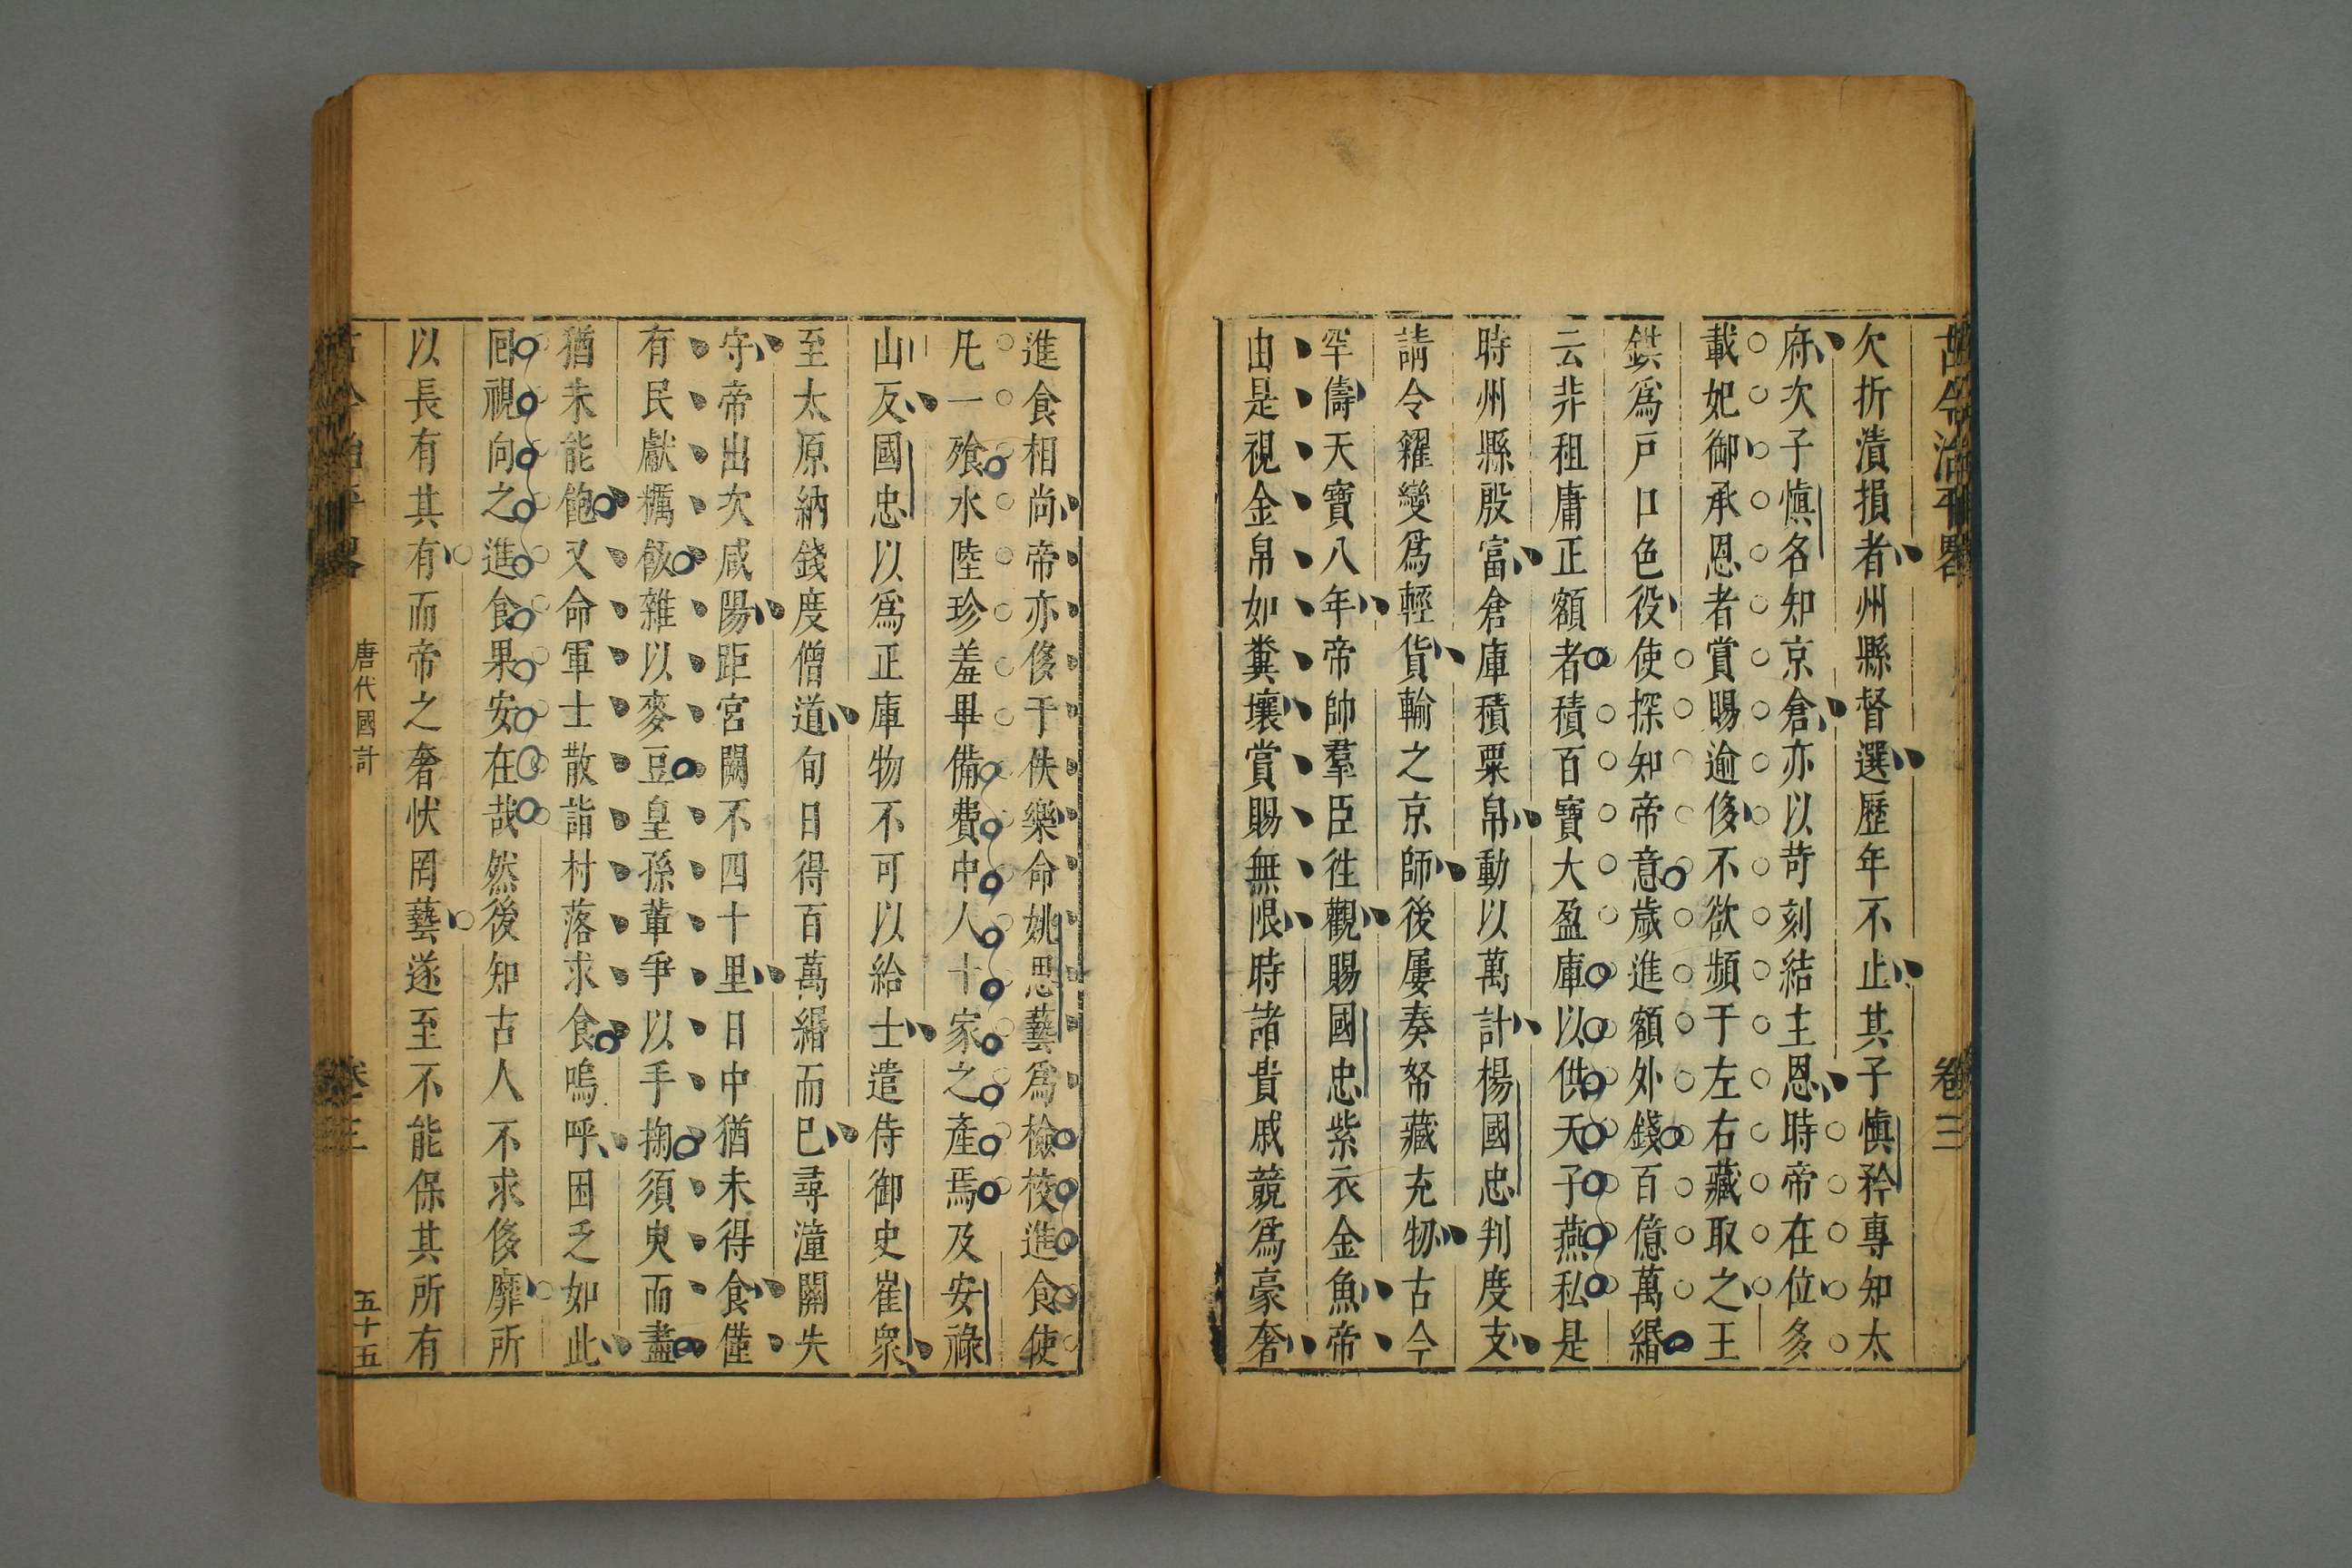 古今治平畧 卷三
欠折漬損者州縣督選歷年不止其子愼矜專知太
府次子愼名知京倉亦以苛刻結主恩時帝在位多
載妃御承恩者賞賜逾侈不欲頻于左右藏取之王
鉷爲戸口色役使探知帝意歲進額外錢百億萬緡
云非租庸正額者積百寶大盈庫以供天子燕私是
時州縣殷富倉庫積粟帛動以萬計楊國忠判度支
請令糴變爲輕貨輸之京師後屢奏帑藏充牣古今
罕儔天寶八年帝帥羣臣徃觀賜國忠紫衣金魚帝
由是視金帛如糞壤賞賜無限時諸貴戚競爲豪奢
進食相尚帝亦侈于佚樂命姚思藝爲檢校進食使
凡一飧水陸珍羞畢備費中人十家之產焉及安祿
山反國忠以爲正庫物不可以給士遣侍御史崔衆
至太原納錢度僧道旬日得百萬緡而已尋潼關失
守帝出次咸陽距宮闕不四十里日中猶未得食僅
有民獻糲飯雜以麥豆皇孫軰爭以手掬須臾而盡
猶未能飽又命軍士散詣村落求食嗚呼困乏如此
囘視向之進食果安在哉然後知古人不求侈靡所
以長有其有而帝之奢忕罔藝遂至不能保其所有
古今治平畧 唐代國計 卷三 五十五